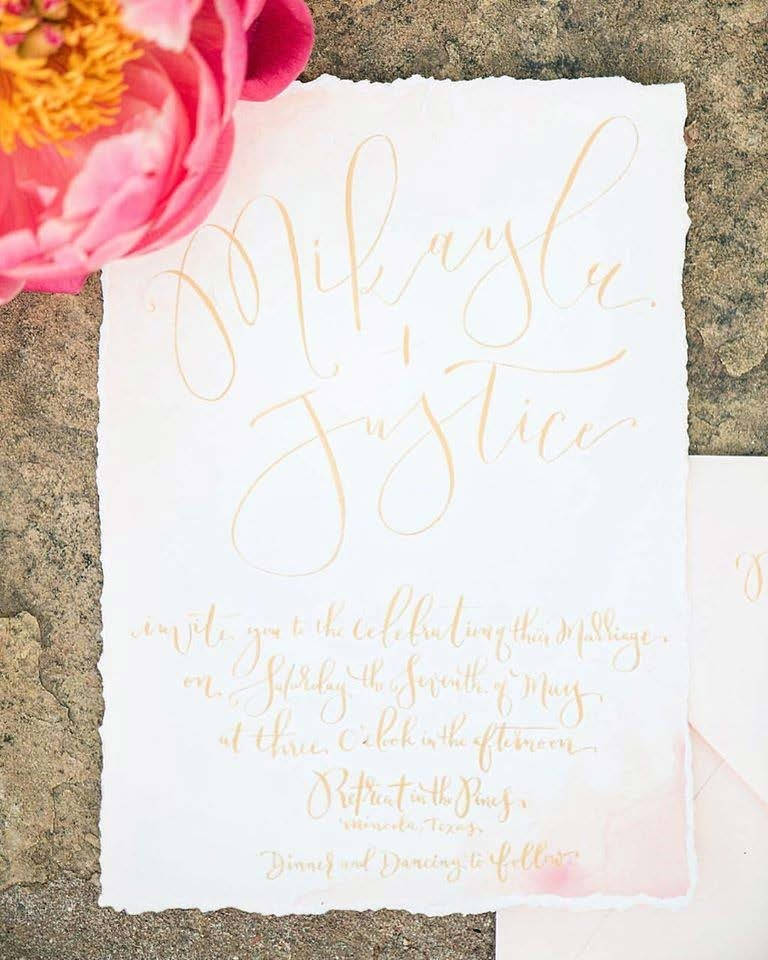 Mikayla
+
Justice
invite you to the celebration of their Marriage
on Saturday, the Seventh of May
at three o'clock in the afternoon
Retreat in the Pines
Mineola, Texas
Dinner and Dancing to follow